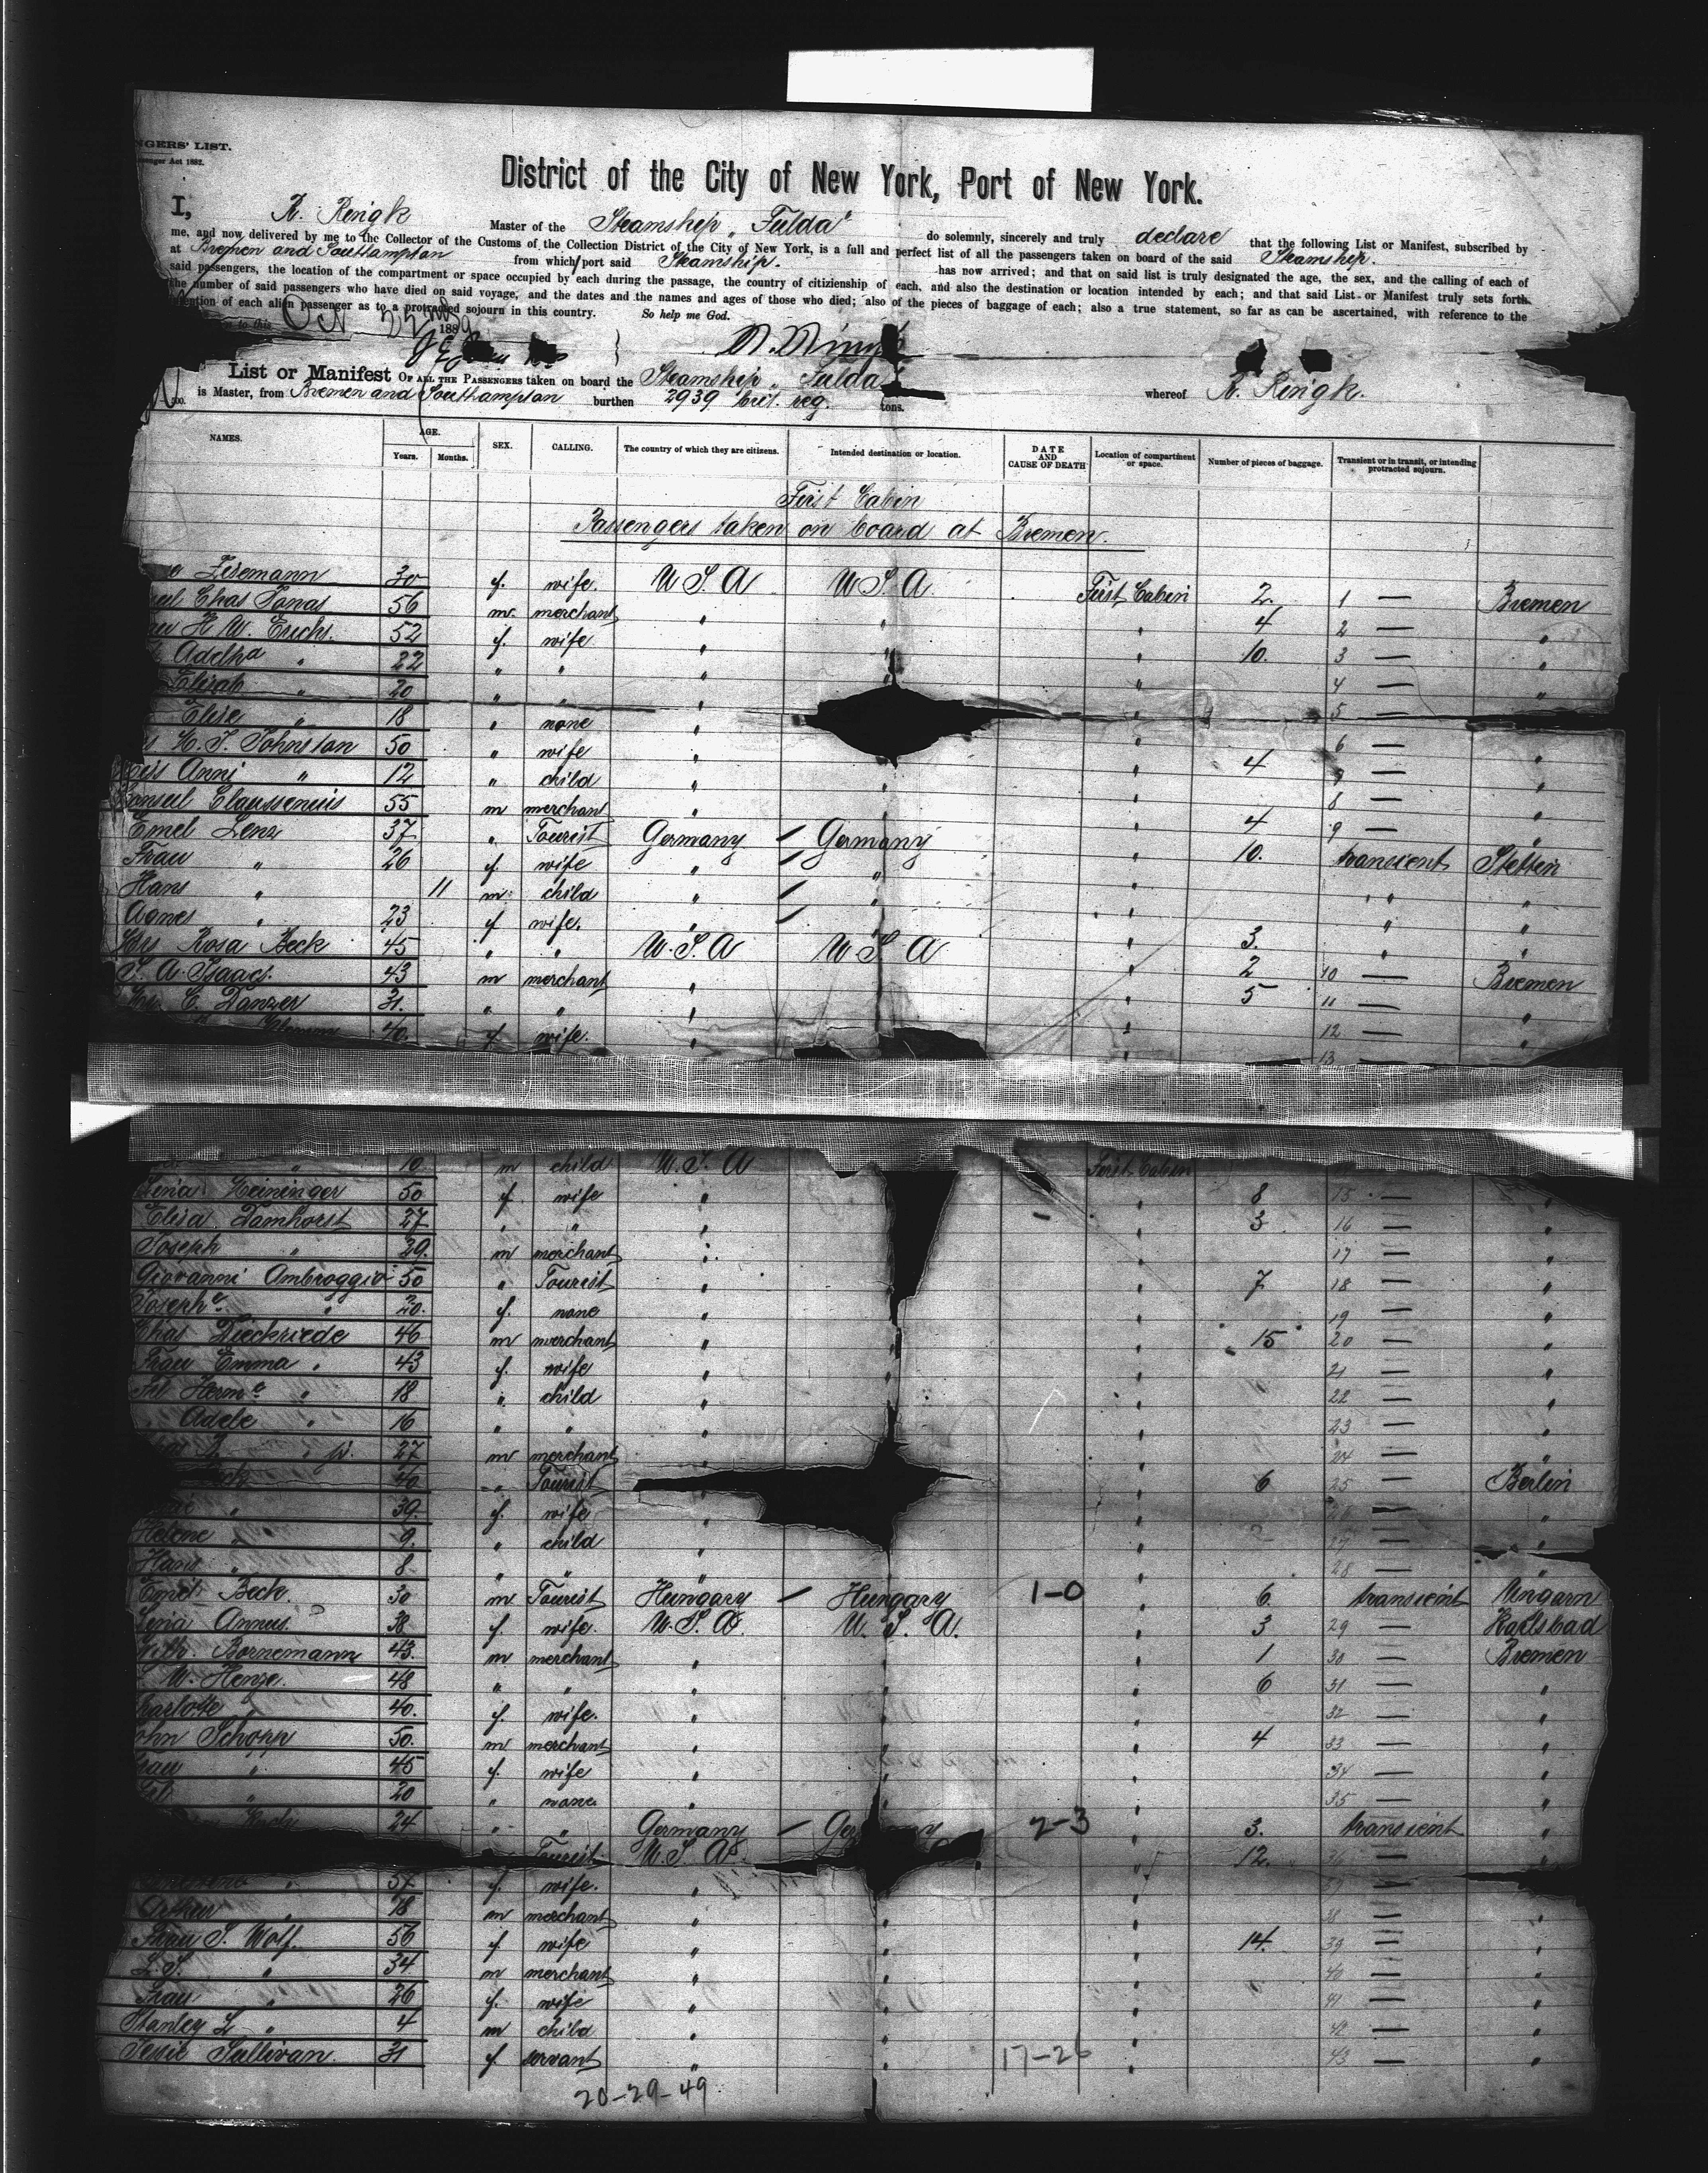 NGERS' LIST.
senger Act 1882.
District of the City of New York, Port of New York.
I, R. Ringk Master of the Steamship „Fulda" do solemnly, sincerely and truly declare that the following List or Manifest, subscribed by
me, and now delivered by me to the Collector of the Customs of the Collection District of the City of New York, is a full and perfect list of all the passengers taken on board of the said Steamship.
at Bremen and Southampton from which port said Steamship. has now arrived; and that on said list is truly designated the age, the sex, and the calling of each of
said passengers, the location of the compartment or space occupied by each during the passage, the country of citizienship of each, and also the destination or location intended by each; and that said List or Manifest truly sets forth
the number of said passengers who have died on said voyage, and the dates and the names and ages of those who died; also of the pieces of baggage of each; also a true statement, so far as can be ascertained, with reference to the
intention of each alien passenger as to a protracted sojourn in this country. So help me God.
to this Oct 22nd 1889
List or Manifest OF ALL THE PASSENGERS taken on board the Steamship „Fulda whereof R. Ringk.
is Master, from Bremen and Southampton burthen 2939 reg. tons.
NAMES. AGE. Years. Months. SEX. CALLING. The country of which they are citizens. Intended destination or location. DATE AND CAUSE OF DEATH Location of compartment or space. Number of pieces of baggage. Transient or in transit, or intending protracted sojourn.
First Cabin
Passengers taken on board at Bremen.
Zisemann 30 f. wife. U S A U S A First Cabin 2. 1 — Bremen
Chas Jonas 56 m. merchant " " " 4 2 — "
H. W. Erichs. 52 f. wife " " " 10. 3 — "
Adelha " 22 " " " " " 4 — "
Elisab " 20 " " " " 5 —
Elise " 18 " none " " 6 — "
H. J. Johnston 50 " wife " " 4 7 — "
Anni " 12 " child " " " 8 — "
Consul Claussenius 55 m merchant " " 4 9 — "
Emil Lenz 37 " Tourist Germany / Germany " 10. transient Stettin
Frau " 26 f. wife " / " " " "
Hans " 11 m. child " / " " " "
Agnes " 23 f wife. " / " 3. " "
Mrs Rosa Beck 45 " " U. S. A U S A " 2 10 — Bremen
J. A. Isaacs. 43 m merchant " " 5 11 — "
C. Danzer 31. " " " " 12 — "
40. f wife. " " 13
" 10 m child U. S. A First Cabin
Heininger 50 f. wife " " 8 15 — "
Elisa Damhorst 27 " " " " 3 16 — "
Joseph " 29. m merchant " " 17 — "
Giovanni Ambroggio 50 " Tourist " " 7 18 — "
Josephe " 20. f. none " " 19 — "
Chas Dieckriede 46 m merchant " " 15 20 — "
Frau Emma " 43 f. wife " " 21 — "
Frl Herme " 18 " child " " 22 — "
Adele " 16 " " " " 23 — "
" jr. 27 m merchant " 24 — "
40 " Tourist " 6 25 — Berlin
" 39. f. wife " " 26 — "
Helene " 9. " child " " 27 —
Hans " 8 " " " " 28 — "
Emil Beck. 30 m Tourist Hungary / Hungary 1-0 " 6. transient Ungarn
Annus. 38 f. wife. U. S. A. U. S. A. " 3 29 — Karlsbad
Wilh. Bornemann 43. m merchant " " " 1 30 — Bremen
W. Henze. 48 " " " " " 6 31 — "
Charlotte " 40. f. wife. " " " 32 — "
John Schopp 50. m merchant " " " 4 33 — "
Frau " 45 f. wife " " " 34 — "
Frl " 20 " none. " " " 35 — "
24 " " Germany / Germany 2-3 " 3. transient "
Tourist U. S. A. " 12. 36 — "
" 57 f. wife. " " 37 — "
Arthur " 18 m merchant " " " 38 — "
Frau S. Wolf. 56 f. wife " " " 14. 39 — "
L. S. " 34 m merchant " " " 40 — "
Frau " 26 f. wife " " " 41 — "
Stanley L " 4 m child " " " 42 — "
Jessie Sullivan. 31 f. servant " " 17-26 " 43 — "
20-29-49